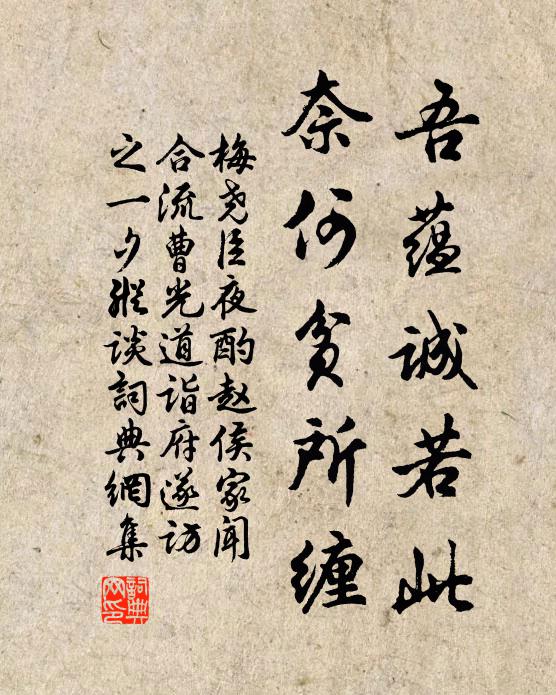 吾蕴诚若此
奈何贫所缠
梅尧臣夜酌赵侯家闻
合流曹光道诣府遂访
之一夕縱谈詞典網集
詞典
网印